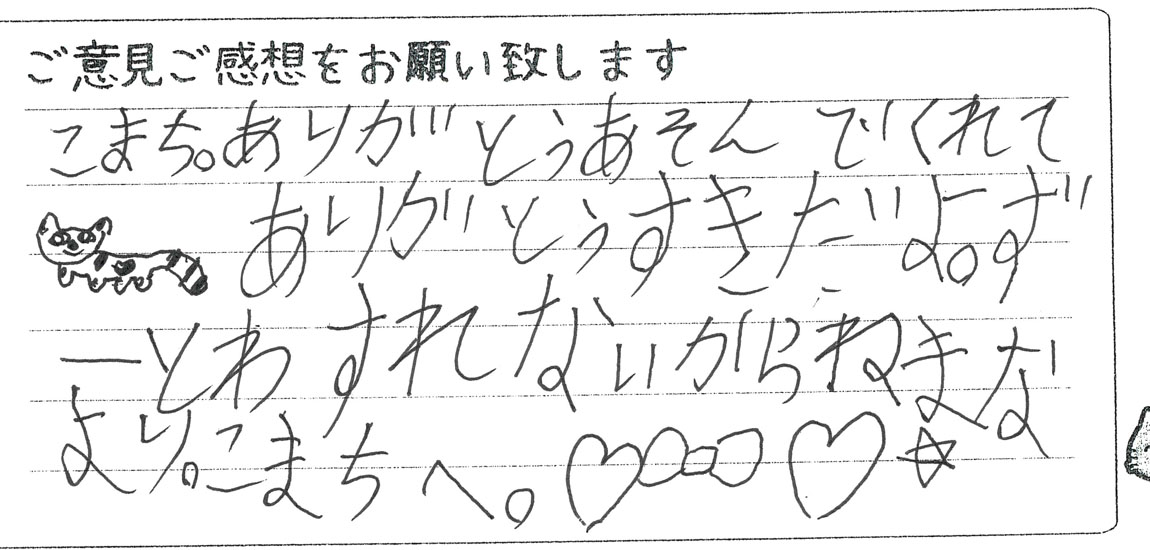 ご意見ご感想をお願い致します
こまち。ありがとうあそんでくれて
ありがとうすきだよ。ず
ーとわすれないからねまな
より。こまちへ。